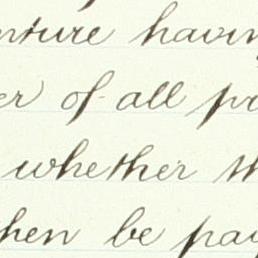 nture havin
er of all po
whether th
hen be pay